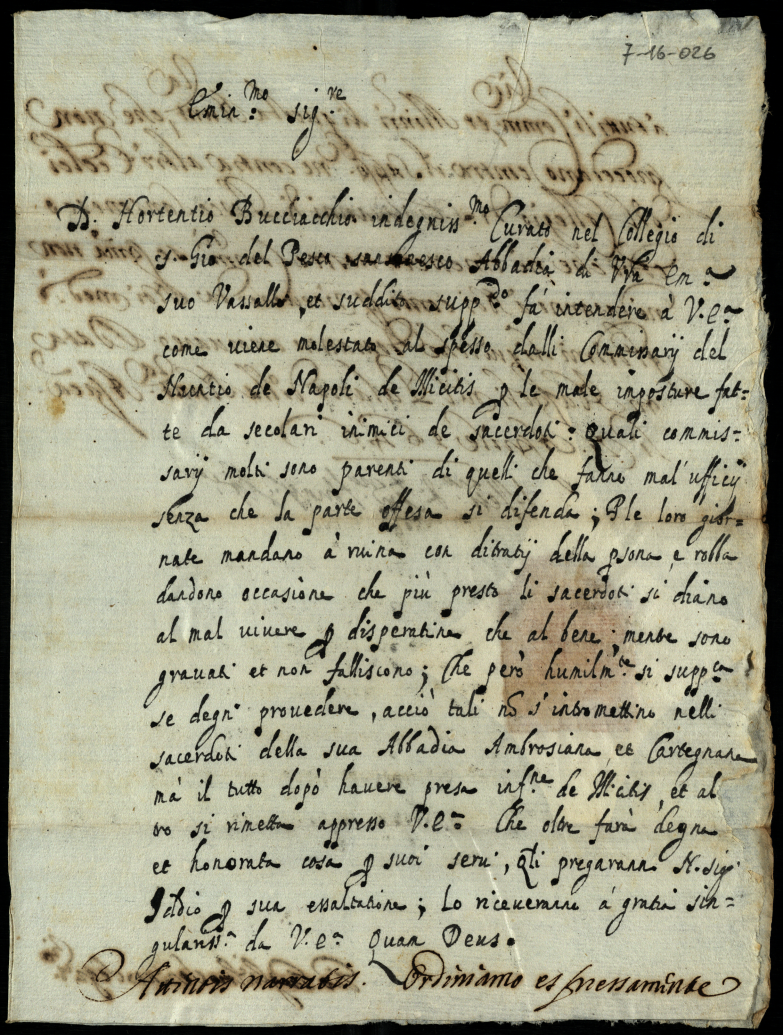 7-16-026
Emin.mo sig.re
D. Hortentio Bucciacchio indegniss.mo Curato nel Collegio di
s. Gio. del Pesco Abbadia di V.ra Em.a
suo Vassallo, et suddito supp.do fà intendere à V.E.a
come viene molestato al spesso dalli Commissarij del
Nuntio de Napoli de Illicitis p le male imposture fat=
te da secolari inimici de sacerdoti: Quali commis=
sarij molti sono parenti di quelli che fanno mal'ufficij
senza che la parte offesa si difenda; P le loro gior=
nate mandano à ruina con della psona, e robba
dandono occasione che più presto li sacerdoti si diano
al mal vivere p disperatine che al bene; mente sono
gravati et non falliscono; Che però humilm.te si supp.ca
se degni provedere, acciò tali nõ s'intromettino nelli
sacerdoti della sua Abbadia Ambrosiana, et Cartegnana
mà il tutto dopò havere presa inf.ne de Illicitis, et al
tro si rimetta appresso V.E.a Che oltre farà degna
et honorata cosa p suoi servi, qli pregarann N. sig.
Iddio p sua essaltatione; Lo riceveranno à gratia sin=
gulariss.a da V.E.a Quam Deus.
Attentis narratis. Ordiniamo espressamente